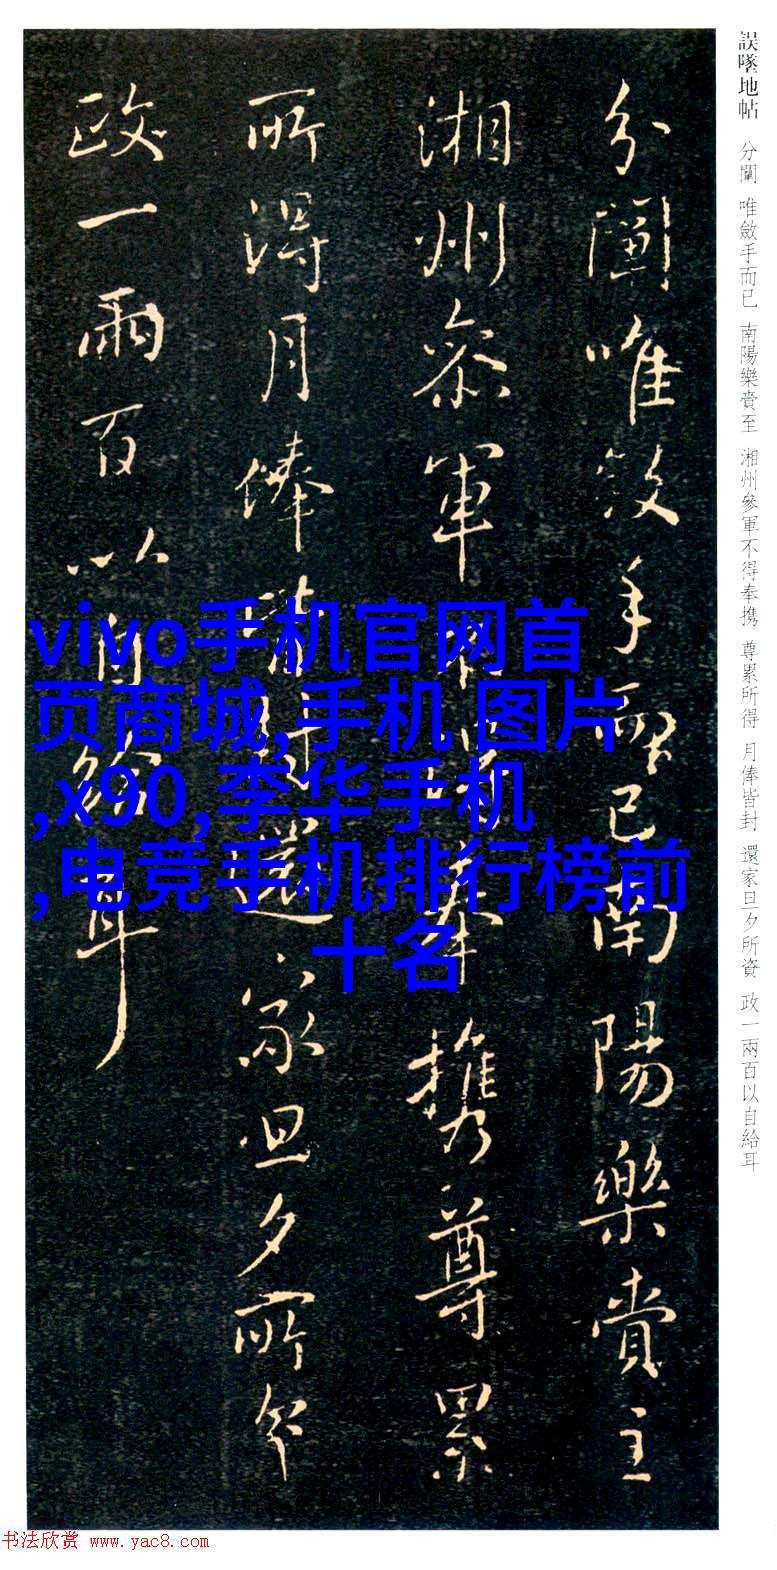 誤墜地帖 分闈 唯斂手而已 南陽樂賁至 湘州參軍不得奉携 尊累所得 月俸皆封 還家旦夕所資 政一兩百以自給耳
分闈唯斂手而已南陽樂賁至
湘州參軍不得奉携尊累
所得月俸皆封還家旦夕所資
政一兩百以自給耳
vivo手机官网首
页商城,手机 图片
,x90,李华手机
,电竞手机排行榜前
十名
书法欣赏 www.yac8.com